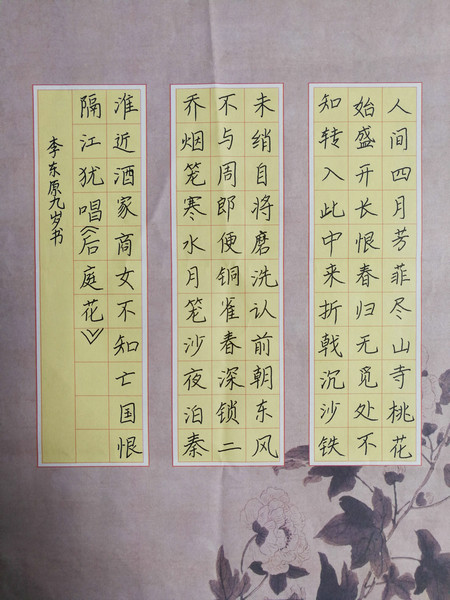 人间四月芳菲尽山寺桃花
始盛开长恨春归无觅处不
知转入此中来折戟沉沙铁
未绡自将磨洗认前朝东风
不与周郎便铜雀春深锁二
乔烟笼寒水月笼沙夜泊秦
淮近酒家商女不知亡国恨
隔江犹唱《后庭花》
李东原九岁书